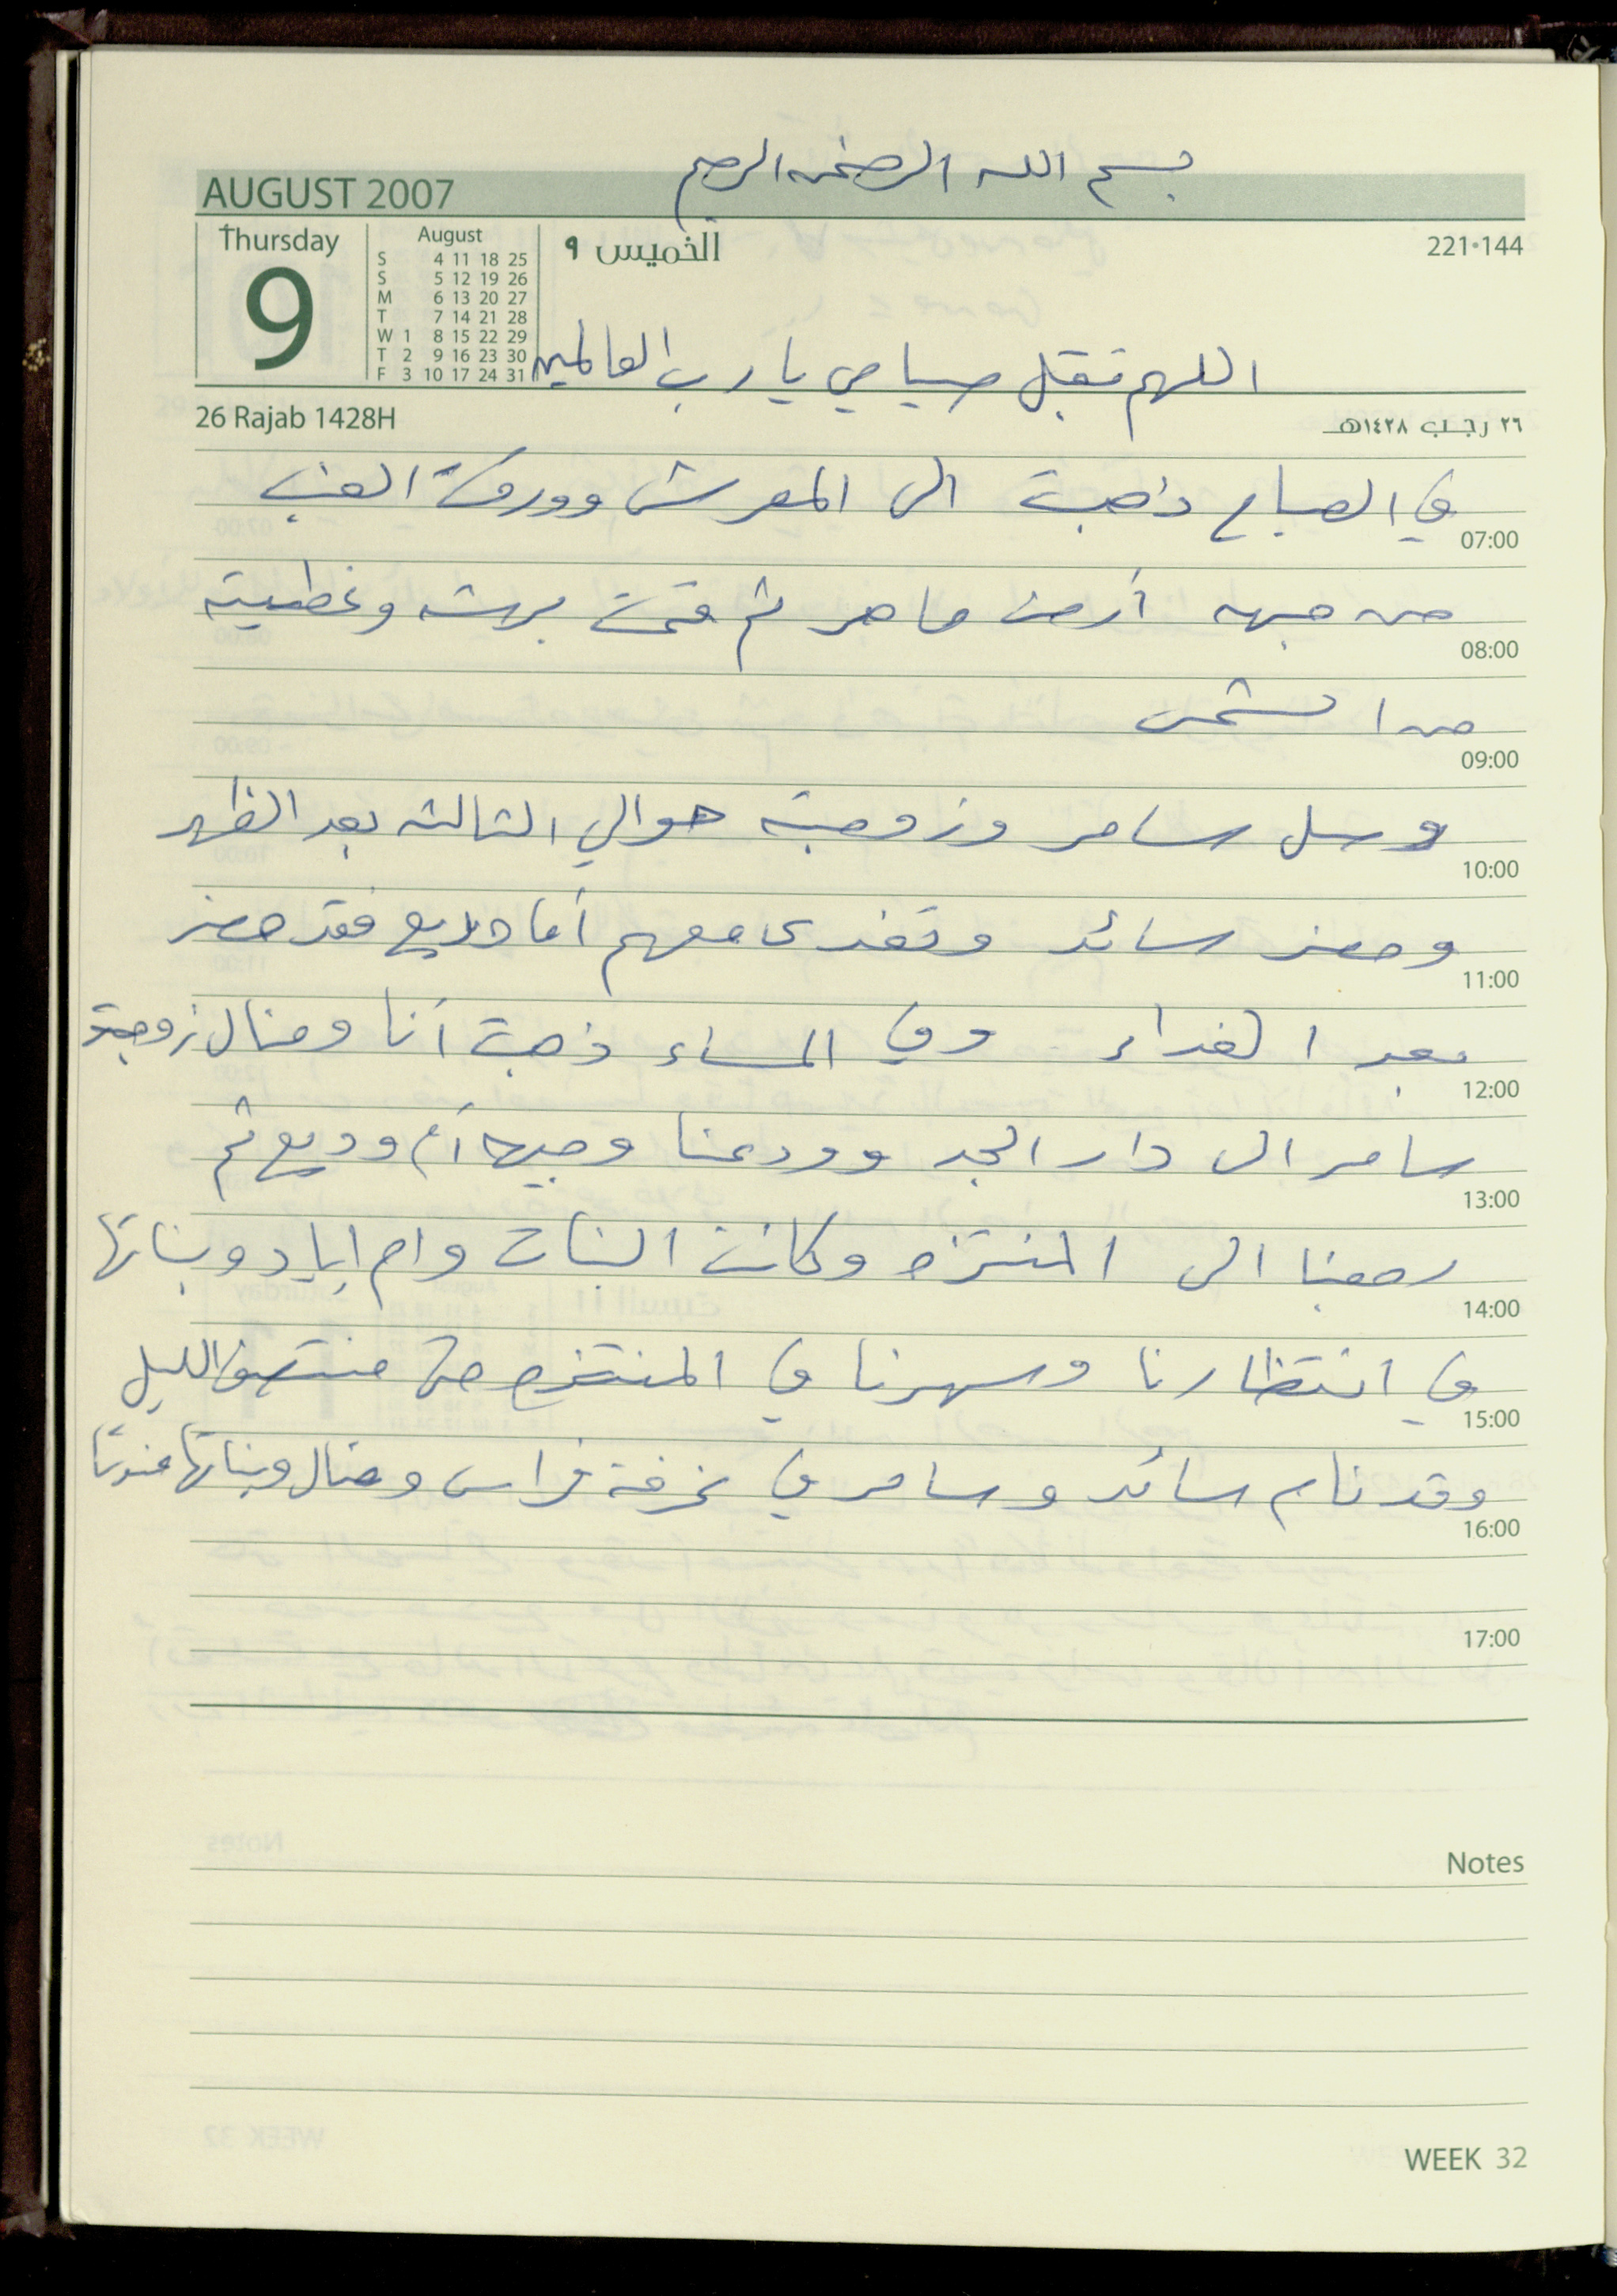 بسم الله الرحمن الرحيم
AUGUST 2007
Thursday
9
August
S 4 11 18 25
S 5 12 19 26
M 6 13 20 27
T 7 14 21 28
W 1 8 15 22 29
T 2 9 16 23 30
F 3 10 17 24 31
الخميس ٩
221•144
اللهم تقبل صيامي يا رب العالمين
26 Rajab 1428H
٢٦ رجب ١٤٢٨هـ
في الصباح ذهبت الى المعرش وورقت العنب
07:00
من جهه أرض ماهر ثم قمت برشه وغطيته
08:00
من الشمس
09:00
وصل سامر وزوجته حوالي الثالثه بعد الظهر
10:00
وحضر سائد وتغدى معهم أما وديع فقد حضر
11:00
بعد الغداء وفي المساء ذهبت أنا ومنال زوجة
12:00
سامر الى دار الجد وودعنا وجيها أم وديع ثم
13:00
رجعنا الى المنتزه وكانت البنات وام اياد وبناتها
14:00
في انتظارنا وسهرنا في المنتزه حتى منتصف الليل
15:00
وقد نام سائد وسامر في غرفة فراس ومنال وبناتها عندنا
16:00
17:00
Notes
WEEK 32